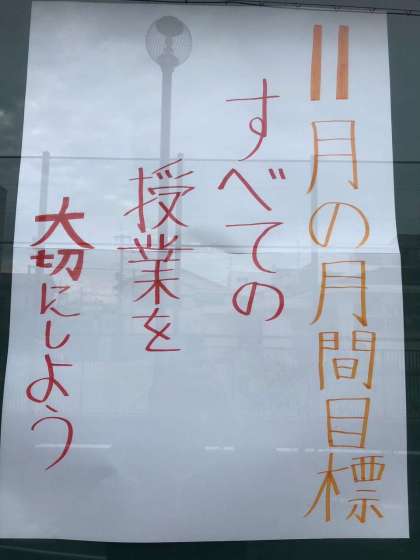 11月の月間目標
すべての
授業を
大切にしよう